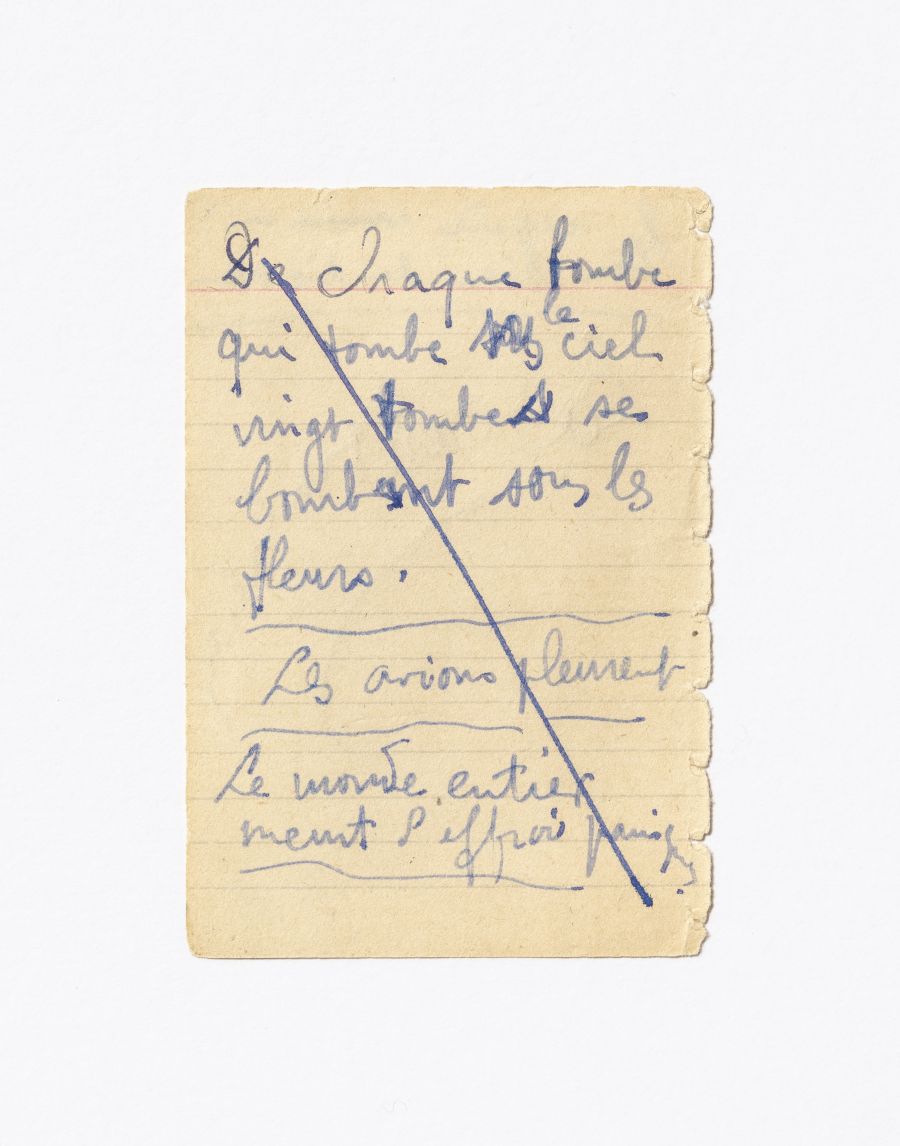 De chaque tombe
qui tombe sous le ciel
vingt tombes se
bombent sous les
fleurs.
Les avions pleurent
Le monde entier
meurt l'effroi